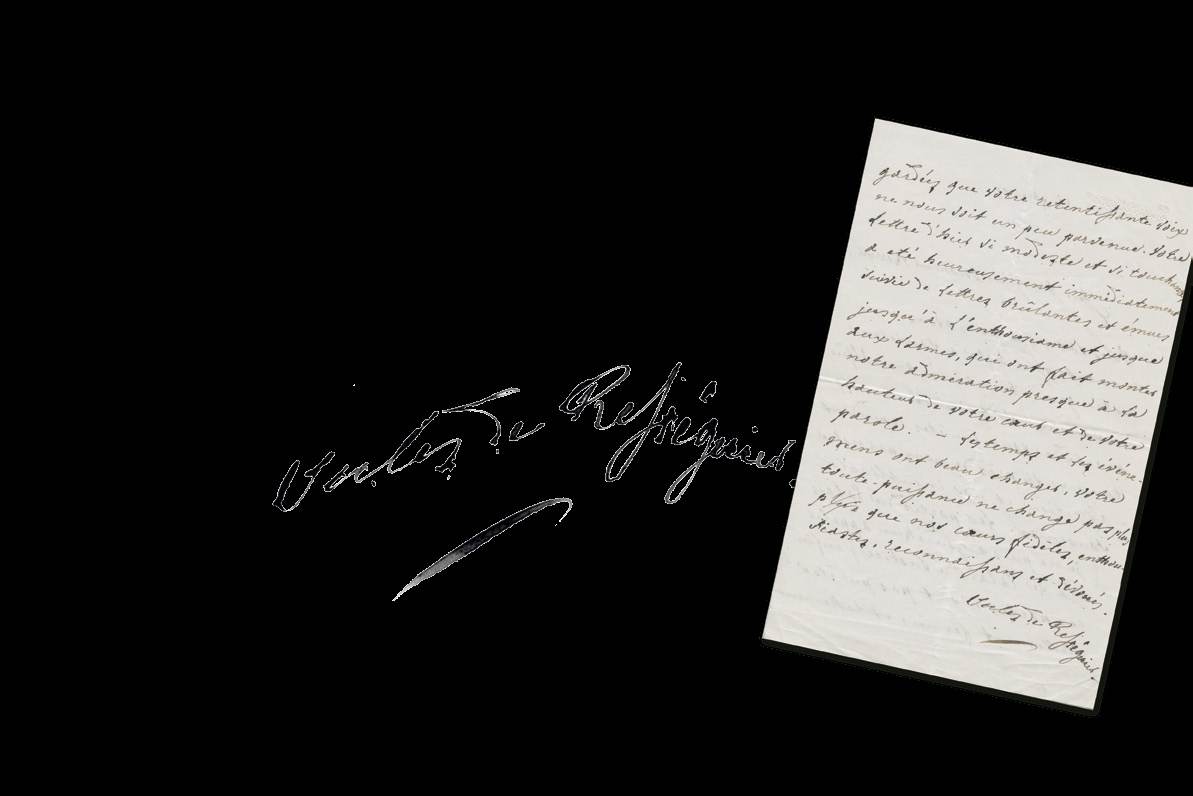 Jules de Rességuier.
gardés que votre retentissante voix
ne nous soit un peu parvenue. Votre
lettre d'hier si modeste et si touchante
a eté heureusement immédiatement
suivie de lettres brûlantes et émues
jusqu'à l'enthousiasme et jusque
aux larmes, qui ont fait monter
notre admiration presque à la
hauteur de votre cœur et de votre
parole. – Les temps et les événe-
mens ont beau changer, votre
toute-puissance ne change pas plus
que nos cœurs fidèles, enthou-
siastes, reconnaissans et dévoués.
Jules de Rességuier.